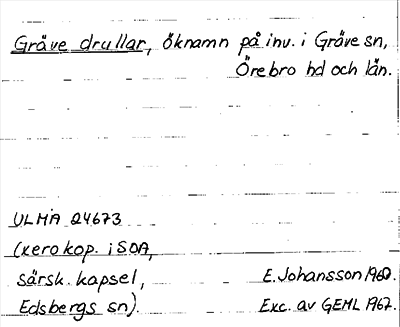 Gräve drullar, öknamn på inv. i Gräve sn,
Örebro hd och län.
ULMA 24673
(xerokop. i SOA,
särsk. kapsel,
E. Johansson 1960.
Edsbergs sn).
Exc. av GEML 1967.